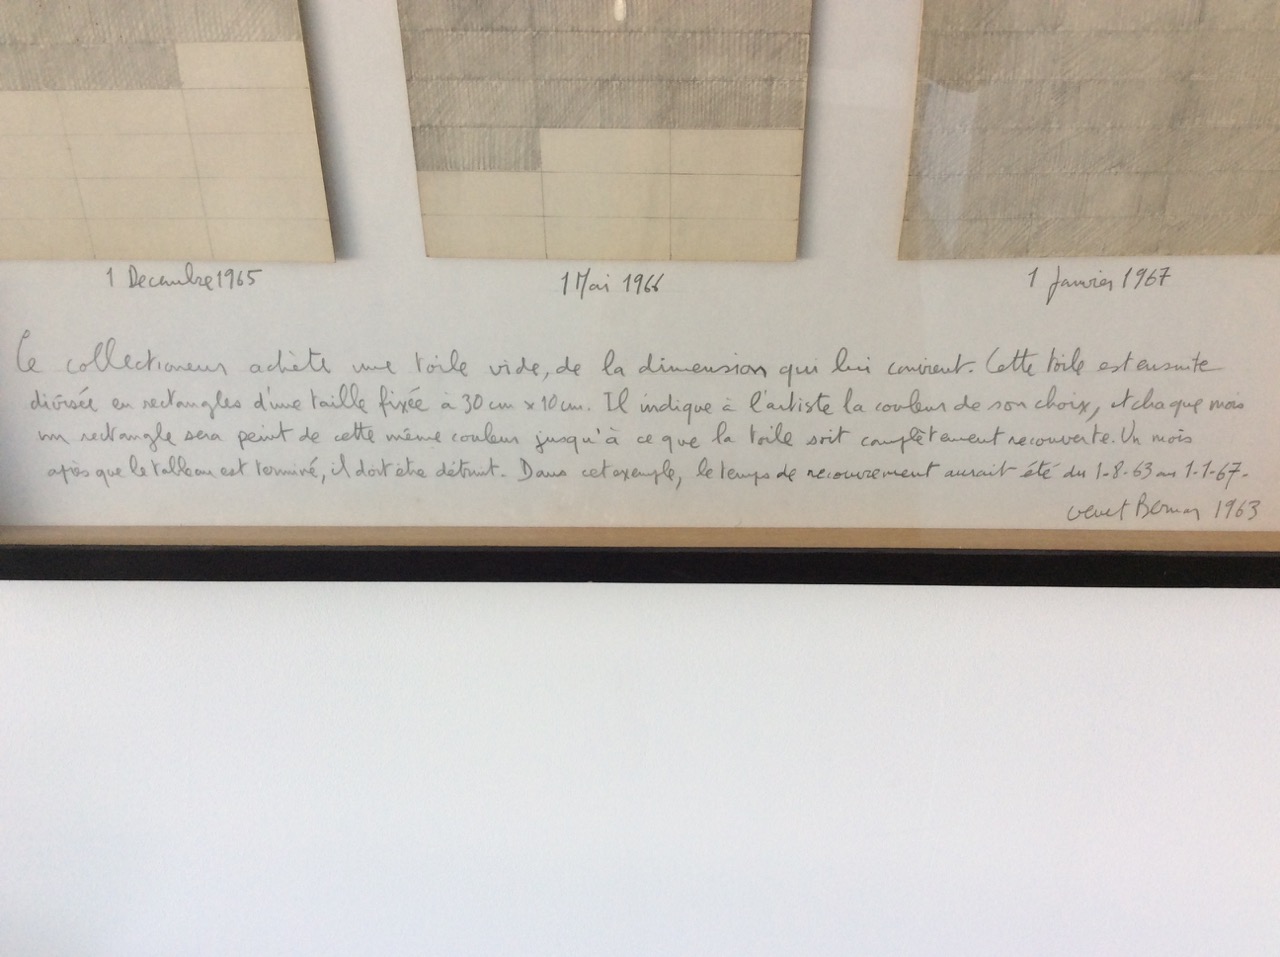 1 Decembre 1965
1 Mai 1966
1 Janvier 1967
Le collectionneur achète une toile vide, de la dimension qui lui convient. Cette toile est ensuite
divisée en rectangles d'une taille fixée à 30 cm x 10 cm. Il indique à l'artiste la couleur de son choix, et chaque mois
un rectangle sera peint de cette même couleur jusqu'à ce que la toile soit complètement recouverte. Un mois
après que le tableau est terminé, il doit être détruit. Dans cet exemple, le temps de recouvrement aurait été du 1-8-63 au 1-1-67.
Venet Bernar 1963